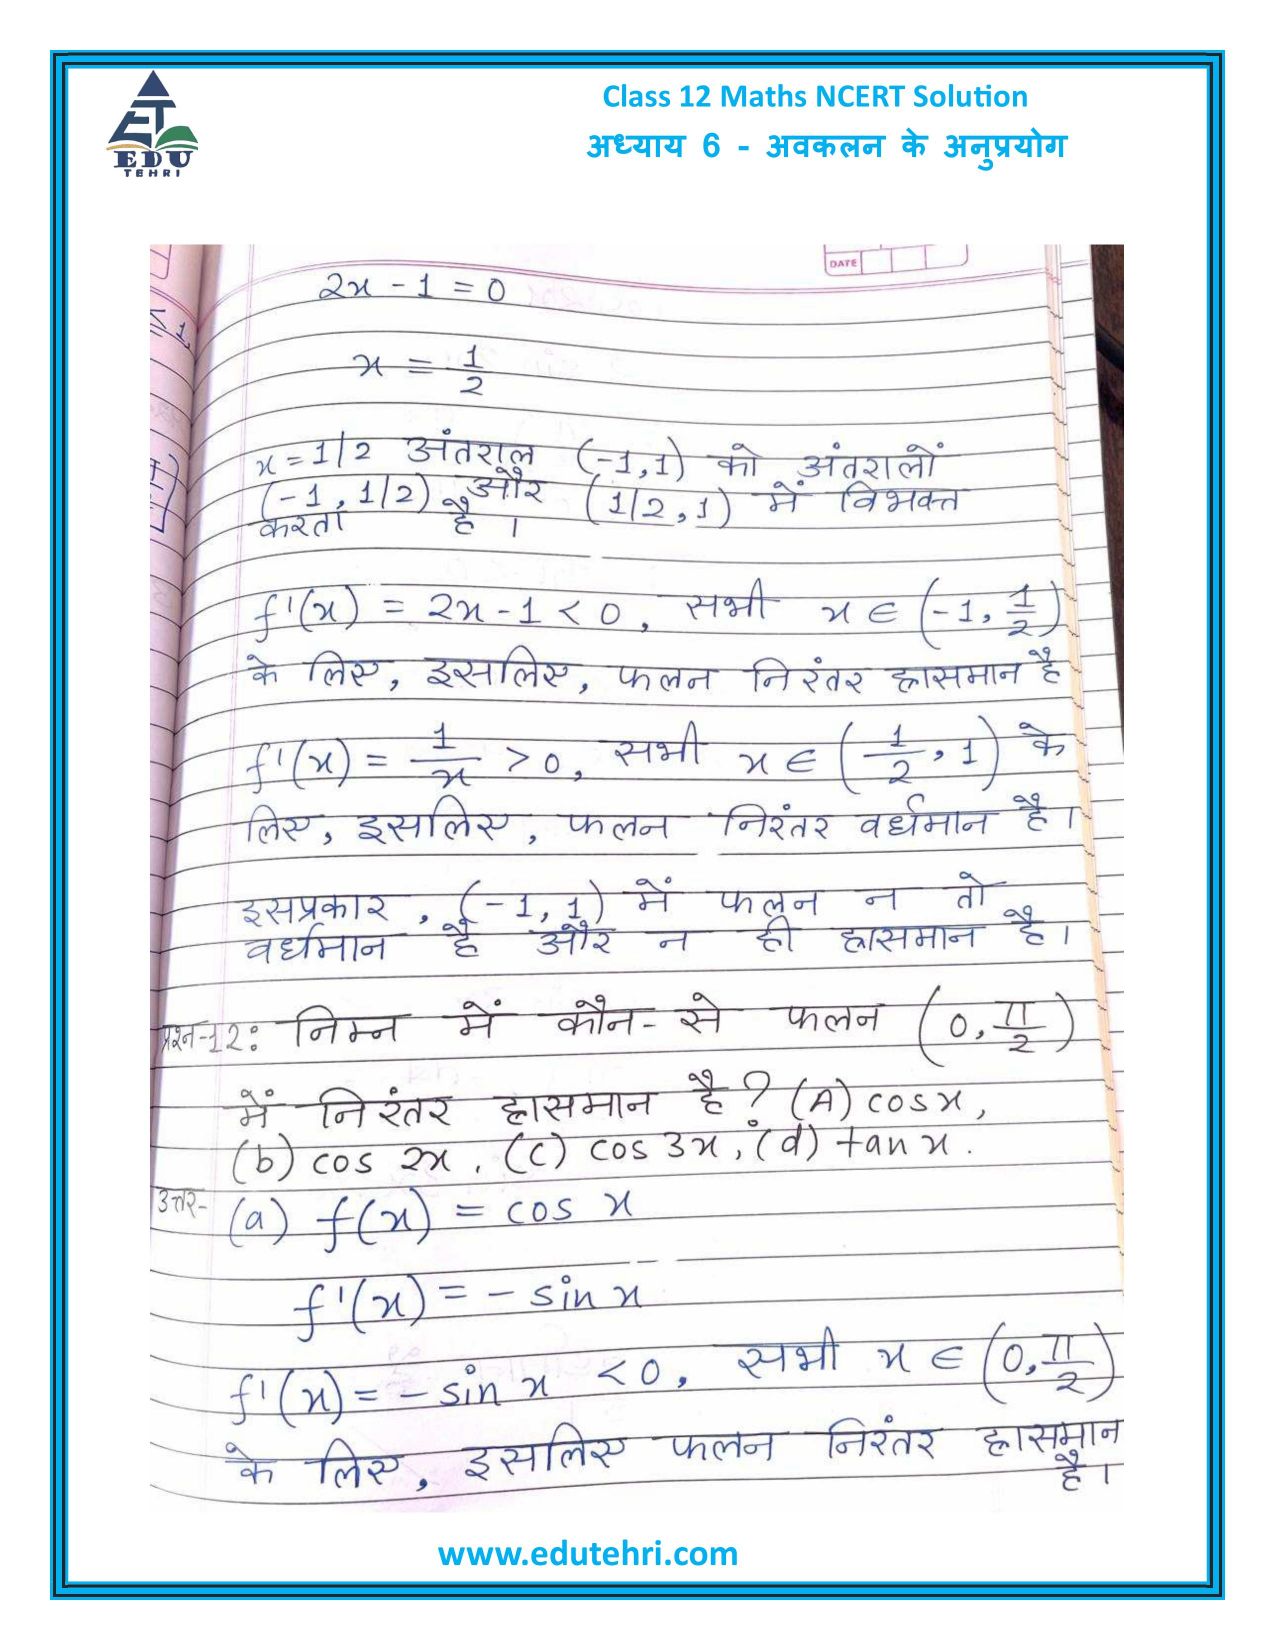 EDU
TEHRI
Class 12 Maths NCERT Solution
अध्याय 6 - अवकलन के अनुप्रयोग
DATE
2x - 1 = 0
x = 1/2
x = 1/2 अंतराल (-1,1) को अंतरालों
(-1, 1/2) और (1/2, 1) में विभक्त
करता है ।
f'(x) = 2x - 1 < 0, सभी x ∈ (-1, 1/2)
के लिए, इसलिए, फलन निरंतर ह्रासमान है
f'(x) = 1/x > 0, सभी x ∈ (1/2, 1) के
लिए, इसलिए, फलन निरंतर वर्धमान है ।
इसप्रकार, (-1, 1) में फलन न तो
वर्धमान है और न ही ह्रासमान है ।
प्रश्न-12: निम्न में कौन-से फलन (0, π/2)
में निरंतर ह्रासमान है ? (A) cos x,
(b) cos 2x, (c) cos 3x, (d) tan x.
उत्तर- (a) f(x) = cos x
f'(x) = - sin x
f'(x) = - sin x < 0, सभी x ∈ (0, π/2)
के लिए, इसलिए फलन निरंतर ह्रासमान
है ।
www.edutehri.com